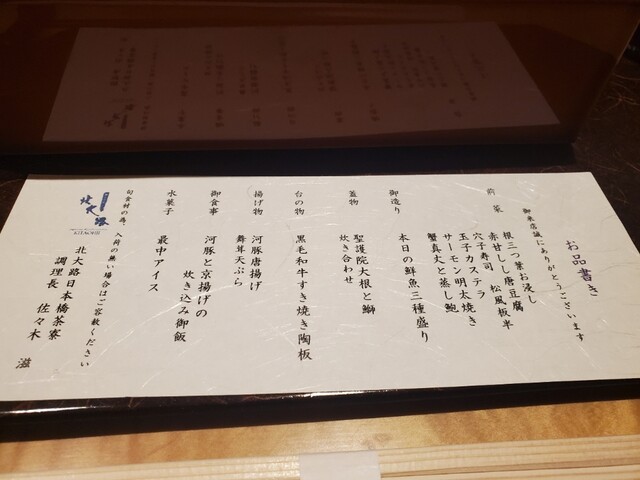 お品書き
御来店誠にありがとうございます
前菜
根三つ葉お浸し
赤甘しし唐豆腐
穴子寿司 松風板半
玉子カステラ
サーモン明太焼き
蟹真丈と蒸し鮑
御造り
本日の鮮魚三種盛り
蓋物
聖護院大根と鰤
炊き合わせ
台の物
黒毛和牛すき焼き陶板
揚げ物
河豚唐揚げ
舞茸天ぷら
御食事
河豚と京揚げの
炊き込み御飯
水菓子
最中アイス
旬食材の為、入荷の無い場合はご容赦ください
北大路
KITAOHJI
北大路日本橋茶寮
調理長 佐々木 滋